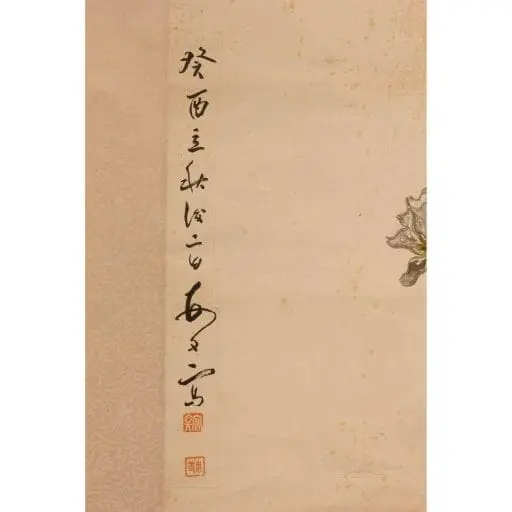 癸酉立秋後二日寫